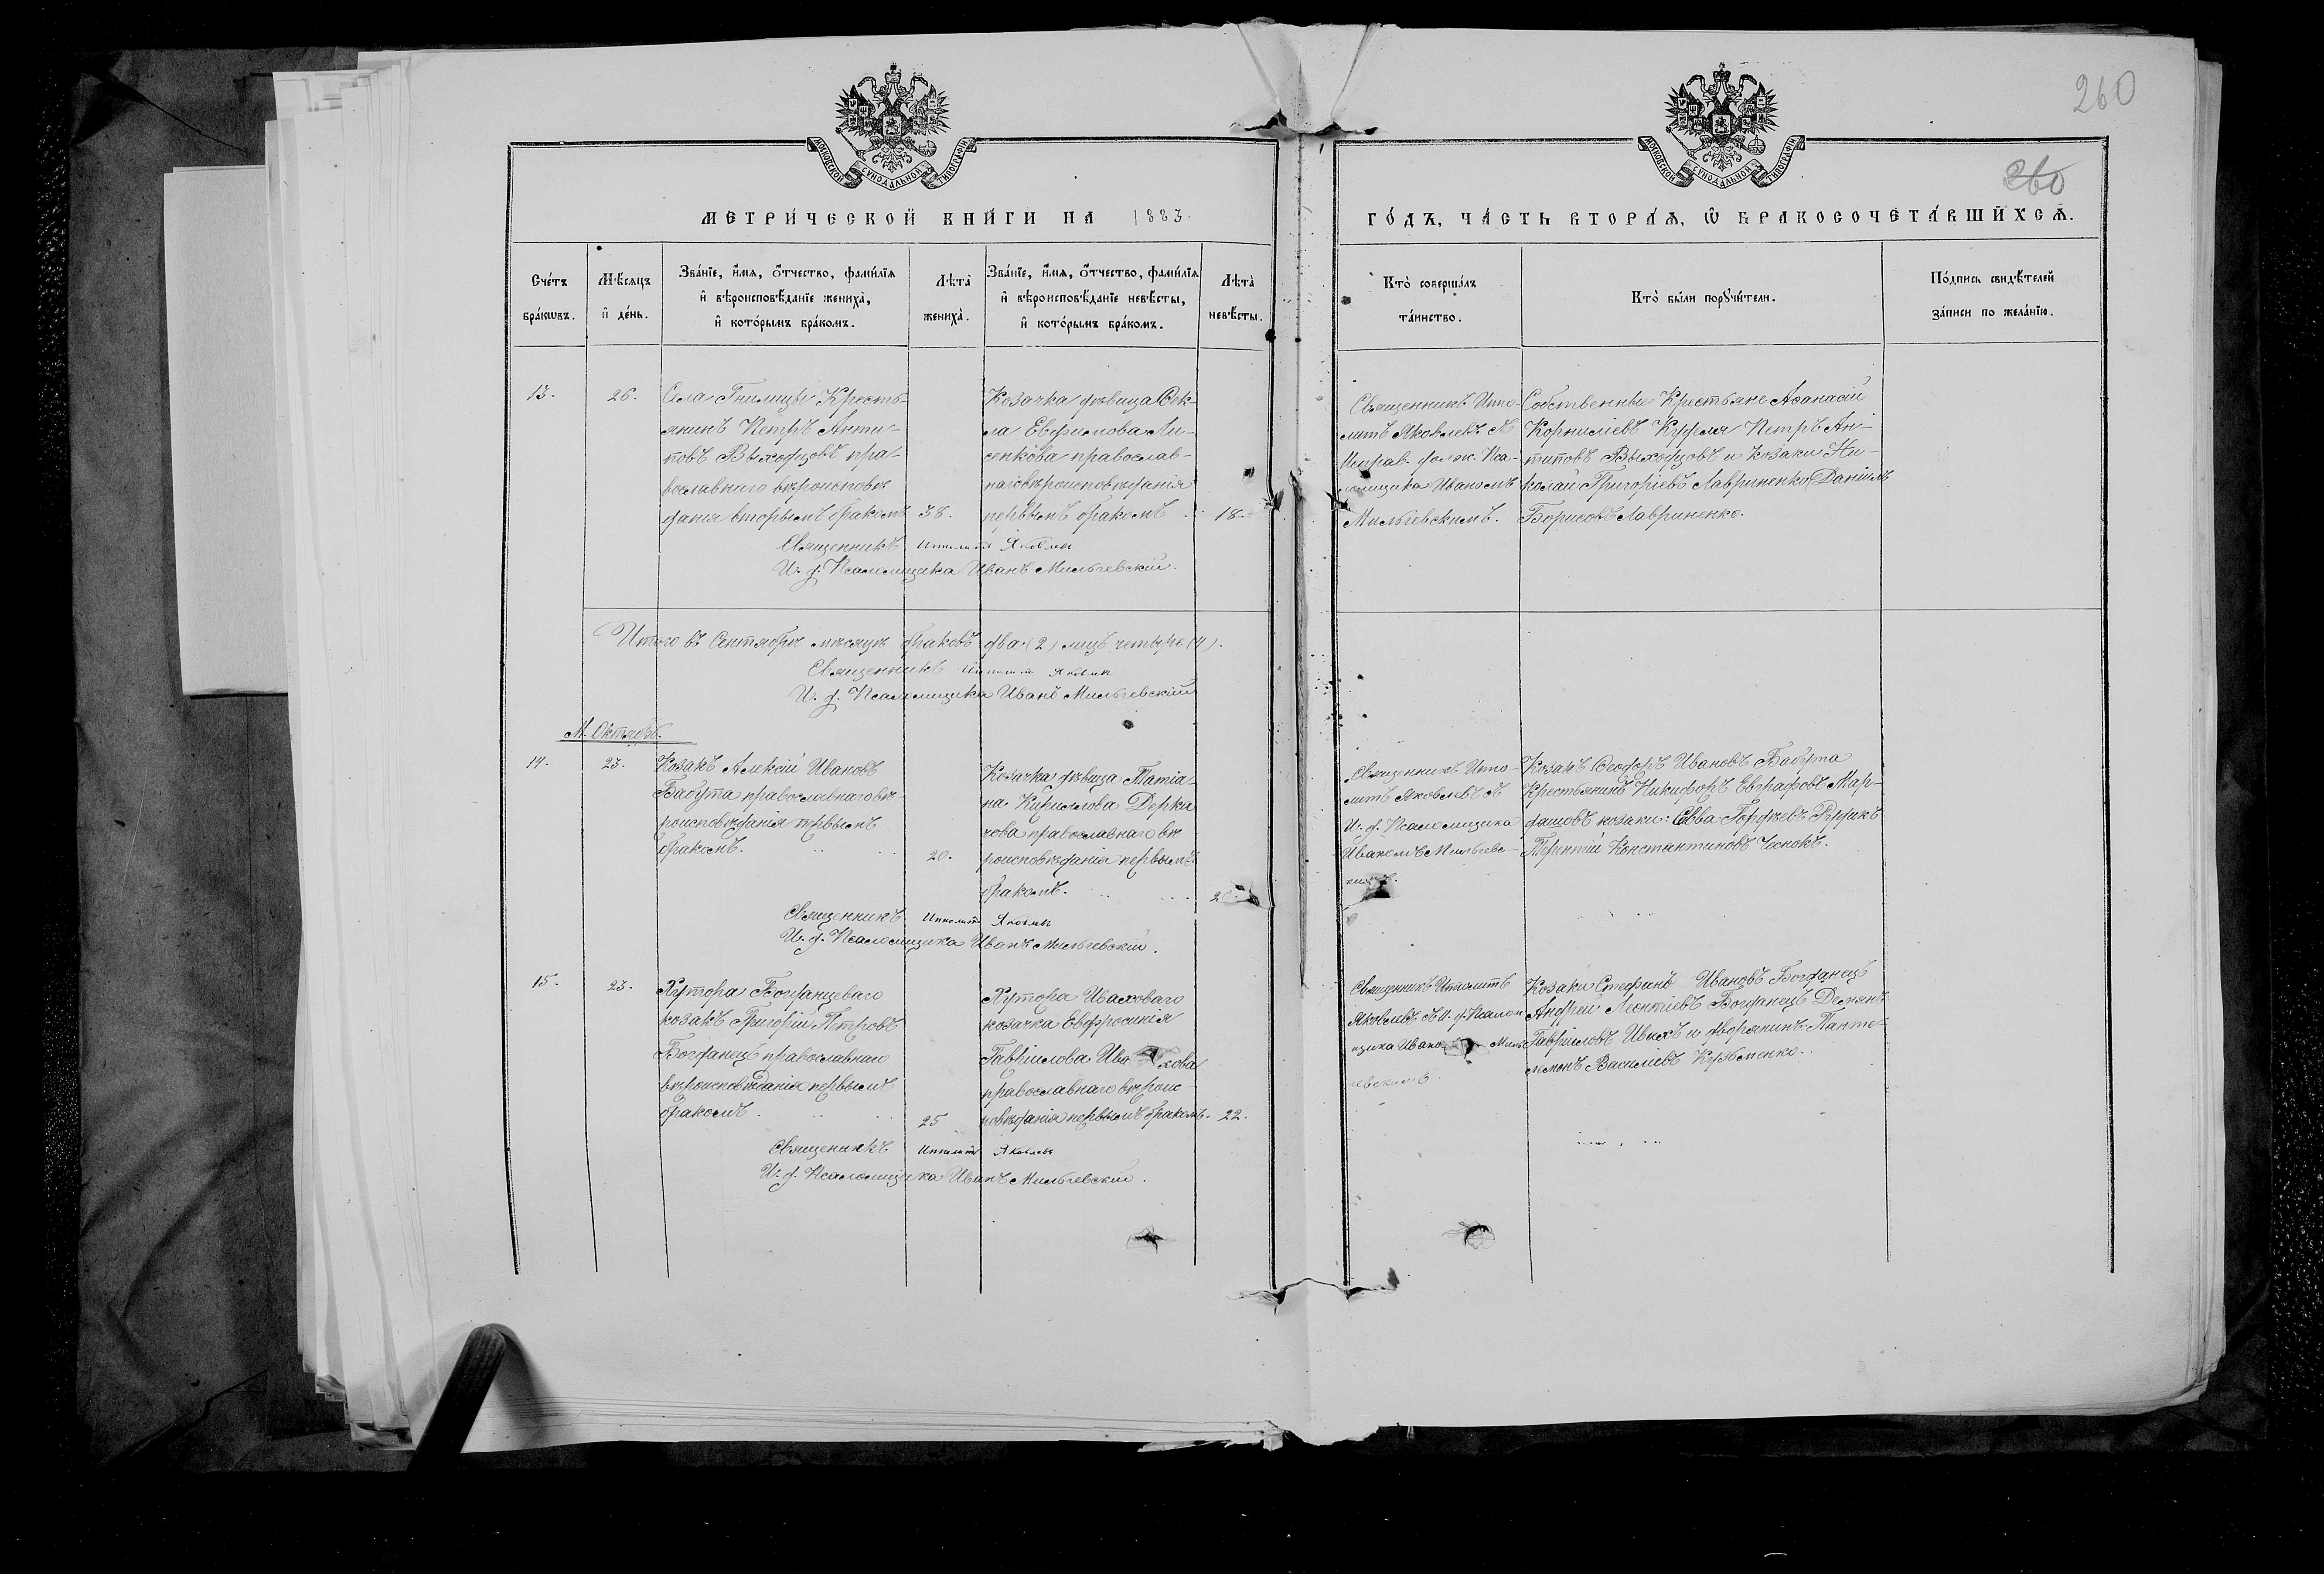 260
260
МОСКОВСКОЙ СѴНОДАЛЬНОЙ ТИПОГРАФІИ
МОСКОВСКОЙ СѴНОДАЛЬНОЙ ТИПОГРАФІИ
МЕТРИ́ЧЕСКОЙ КНИ́ГИ НА 1883
ГО́ДЪ, ЧА́СТЬ ВТОРА́Я, Ѡ БРАКОСОЧЕТА́ВШИХСЯ.
Сче́тъ
бра́кѡвъ.
Мѣ́сяцъ
и де́нь.
Зва́нїе, и́мя, о́тчество, фами́лїя
и вѣроисповѣ́данїе жениха̀,
и кото́рымъ бра́комъ.
Лѣта̀
жениха̀.
Зва́нїе, и́мя, о́тчество, фами́лїя
и вѣроисповѣ́данїе невѣ́сты,
и кото́рымъ бра́комъ.
Лѣта̀
невѣ́сты.
Кто̀ соверша́лъ
та́инство.
Кто̀ бы́ли порꙋчи́тели.
По́дпись свидѣ́телей
за́писи по жела́нїю.
13.
26.
Села Гнилицы Кресть-
янинъ Петръ Анти-
повъ Выходцовъ пра-
вославнаго вѣроисповѣ
данія вторымъ бракомъ
38.
Козачка дѣвица Фек-
ла Евфимова Ли-
сенкова православ-
наго вѣроисповѣданія
первымъ бракомъ
18.
Священникъ Иппо-
литъ Яковлевъ съ
Исправ. долж. Пса-
ломщика Иваномъ
Мильгевскимъ.
Собственны Крестьяне Аѳанасій
Корниліевъ Петръ Ан-
типовъ Выходцовъ и Козаки Ни-
колай Григоріевъ Лавриненко Даніилъ
Борисовъ Лавриненко.
Священникъ Ипполитъ Яковлевъ
И. д. Псаломщика Иванъ Мильгевскій.
Итого въ Сентябрѣ мѣсяцѣ браковъ два (2) лицъ четыре (4).
Священникъ Ипполитъ Яковлевъ
И. д. Псаломщика Иванъ Мильгевскій
М. Октябрь.
14.
23.
Козакъ Алексій Ивановъ
Бабута православнаго вѣ-
роисповѣданія первымъ
бракомъ.
20.
Козачка дѣвица Татіа-
на Кириллова Дерка
чова православнаго вѣ
роисповѣданія первымъ
бракомъ.
20
Священникъ Иппо-
литъ Яковлевъ съ
И. д. Псаломщика
Иваномъ Мильгевс-
кимъ.
Козакъ Ѳеодоръ Ивановъ Бабута
Крестьянинъ Никифоръ Евграфовъ Мар-
дашовъ козаки: Савва Гордѣевъ
Терентій Константиновъ Чеснокъ.
Священникъ Ипполитъ Яковлевъ
И. д. Псаломщика Иванъ Мильгевскій.
15.
23.
Хутора Богданцеваго
козакъ Григорій Петровъ
Богданецъ православнаго
вѣроисповѣданія первымъ
бракомъ.
25
Хутора Иваховаго
козачка Евфросинія
Гавріилова Ива хова
православнаго вѣроис-
повѣданія первымъ бракомъ.
22.
Священникъ Ипполитъ
Яковлевъ съ И. д. Псалом
щика Ивано Миль
гевскимъ
Козаки Стефанъ Ивановъ Богданецъ
Андрей Леонтіевъ Богданецъ Демянъ
Гавріиловъ Ивахъ и дворянинъ Панте-
лемонъ Василіевъ Кузьменко.
Священикъ Ипполитъ Яковлевъ
И. д. Псаломщика Иванъ Мильгевскій.